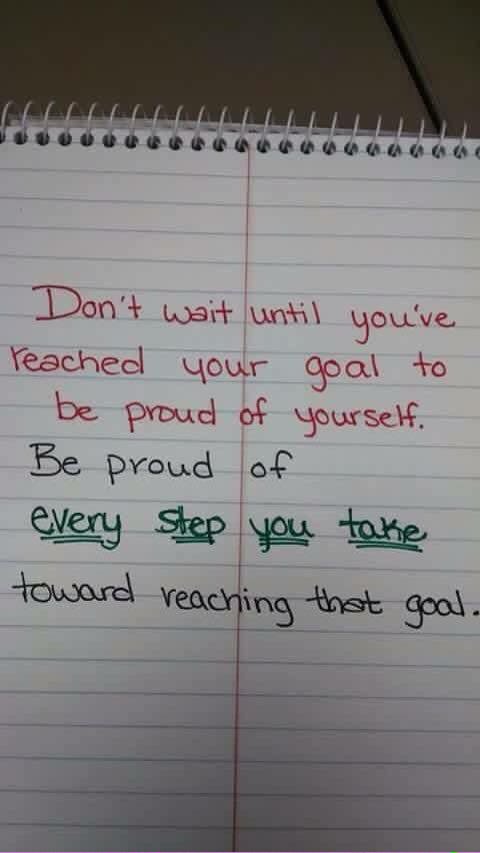 Don't wait until you've
reached your goal to
be proud of yourself.
Be proud of
every step you take
toward reaching that goal.